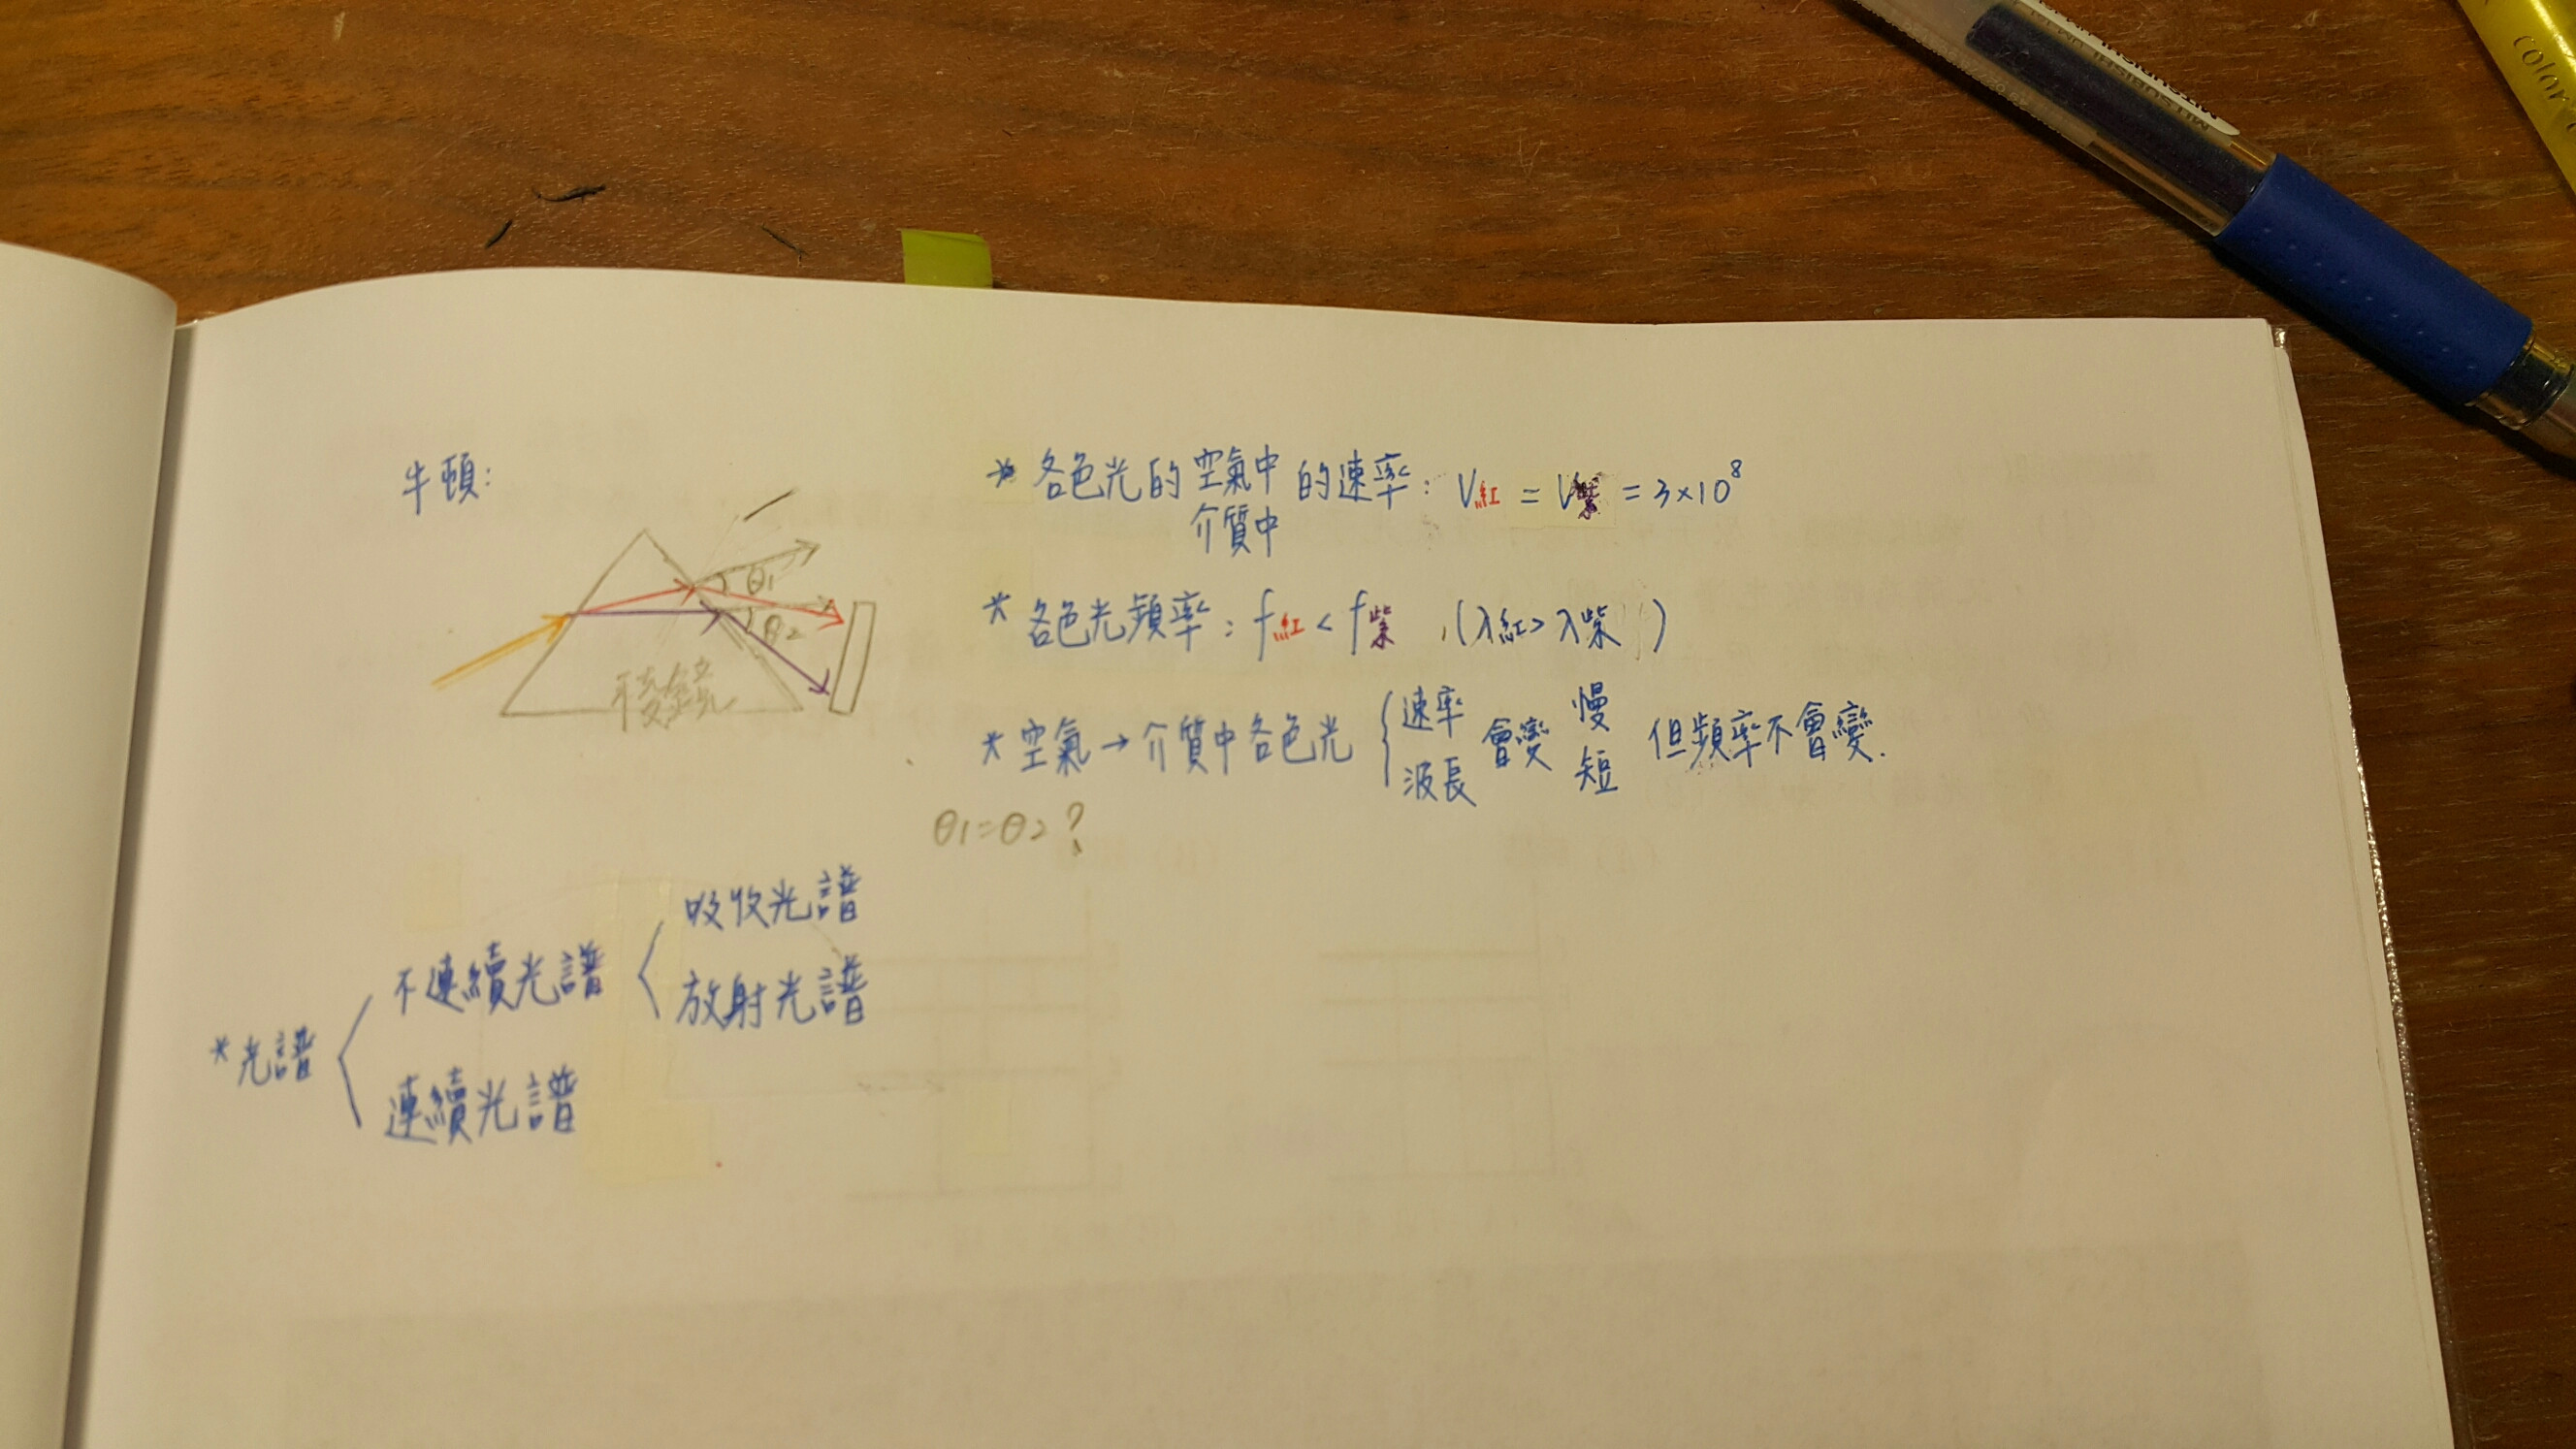 牛頓:
θ1
θ2
稜鏡
* 各色光的空氣中的速率: V紅 = V紫 = 3×10⁸
介質中
* 各色光頻率: f紅 < f紫 , (λ紅 > λ紫)
* 空氣 → 介質中各色光 { 速率 會變 慢 但頻率不會變.
波長 短
θ1=θ2?
吸收光譜
不連續光譜
放射光譜
* 光譜
連續光譜
color